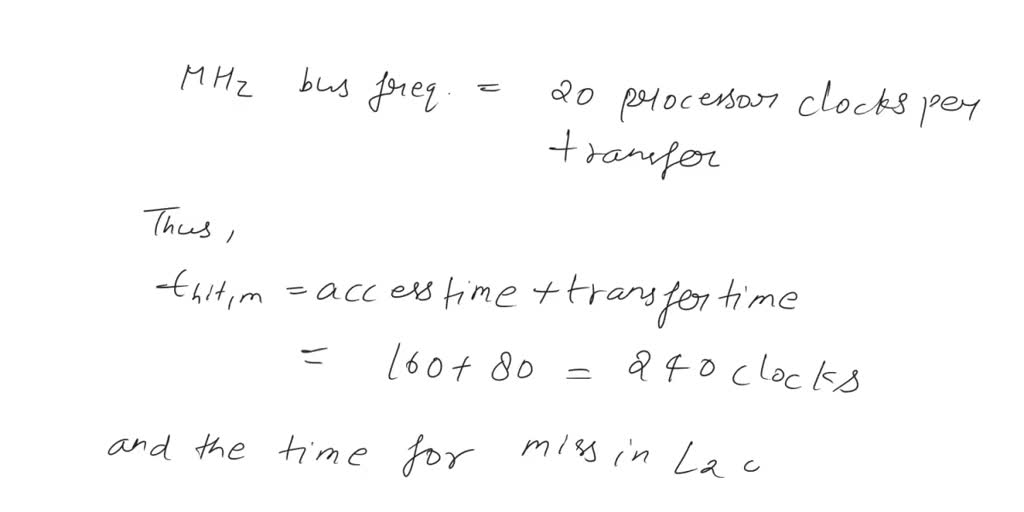 MHz bus freq. = 20 processor clocks per
transfer
Thus,
thit,m = access time + transfer time
= 160 + 80 = 240 clocks
and the time for miss in L2 c